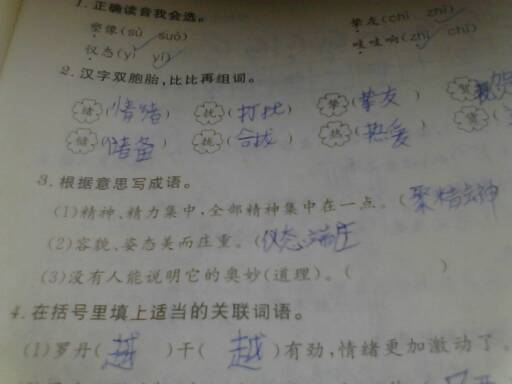 1.正确读音我会选。
塑像(sù suò) 挚友(chì zhì)
仪态(yì yí) 吱吱响(zhī chī)
2.汉字双胞胎,比比再组词。
绪(情绪) 抚( ) 挚(挚友) 贺
储(储备) 拢(合拢) 热(热爱) 赏
3.根据意思写成语。
(1)精神、精力集中,全部精神集中在一点。(聚精会神
(2)容貌、姿态美而庄重。(仪态端庄
(3)没有人能说明它的奥妙(道理)。( )
4.在括号里填上适当的关联词语。
(1)罗丹(越)干(越)有劲,情绪更加激动了。